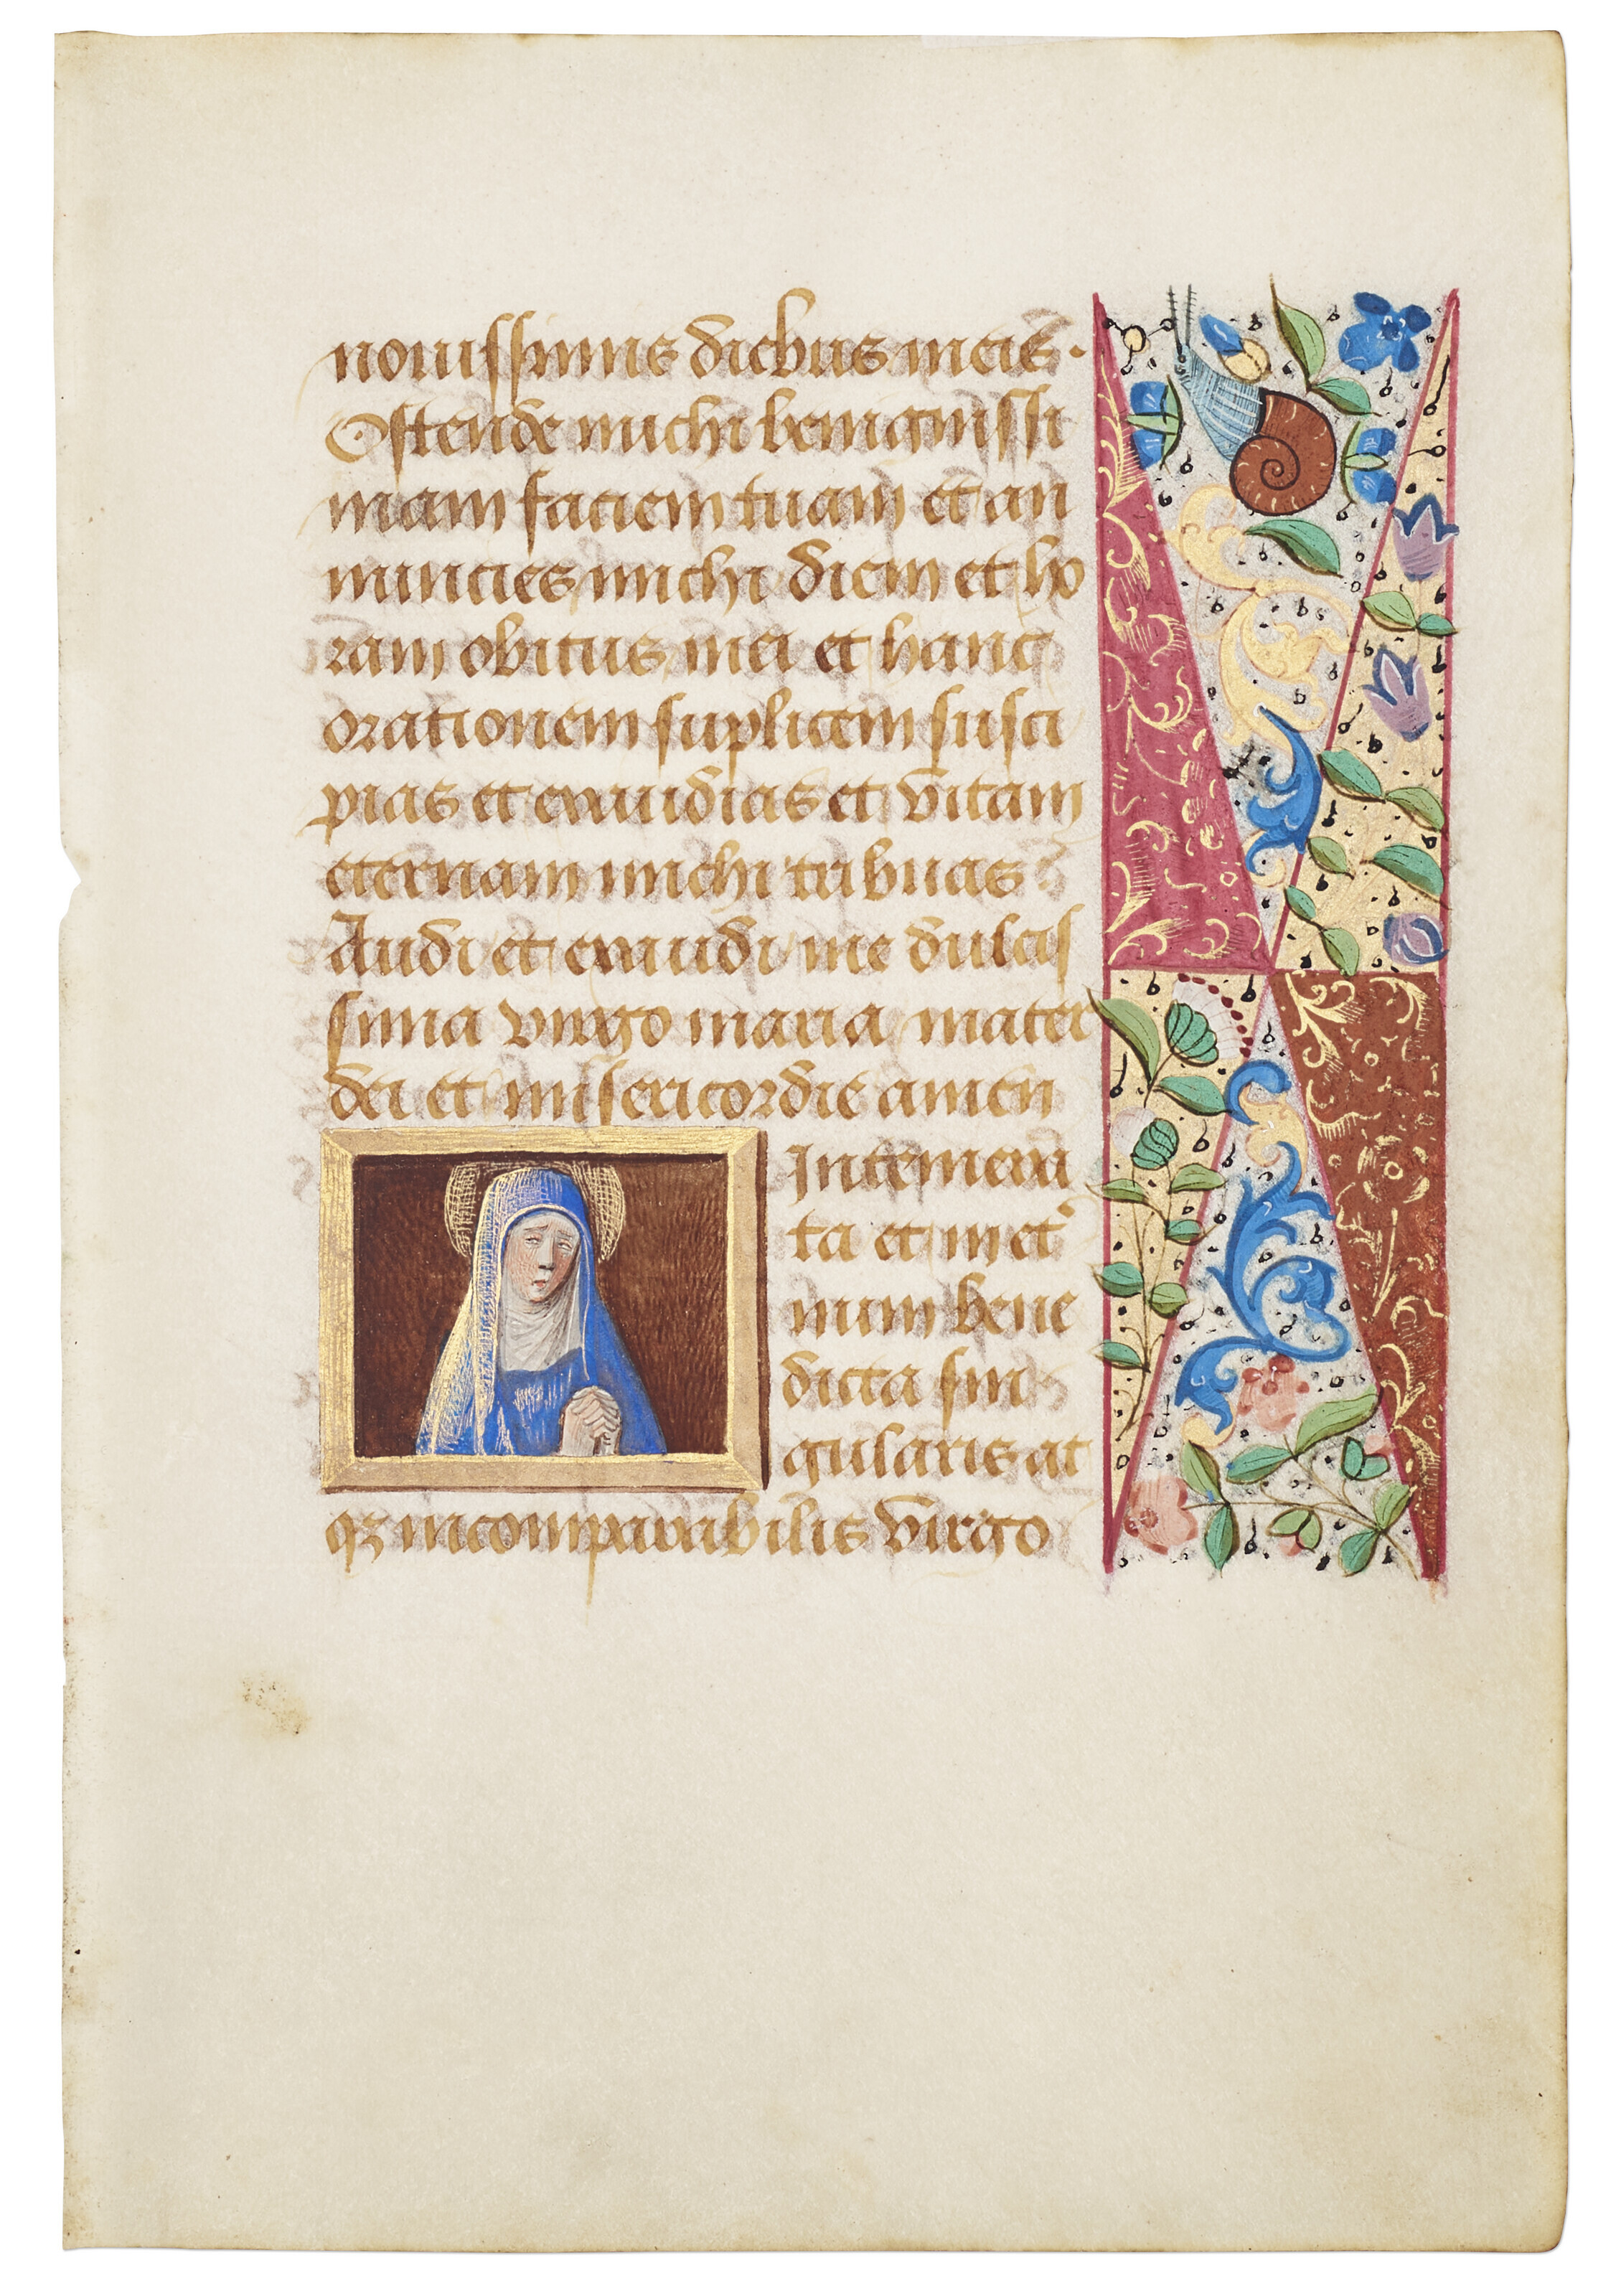 nouissimis diebus meis.
Ostende michi benignissi
mam faciem tuam et an
nuncies michi diem et ho
ram obitus mei et hanc
orationem suplicem susci
pias et exaudias et vitam
eternam michi tribuas
Audi et exaudi me dulcis
sima virgo maria mater
dei et misericordie amen
Intemera
ta et in et̾
num bene
dicta sin
gularis at
qꝫ incomparabilis virgo